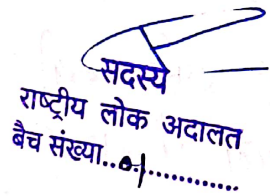 सदस्य
राष्ट्रीय लोक अदालत
बैच संख्या..01.............